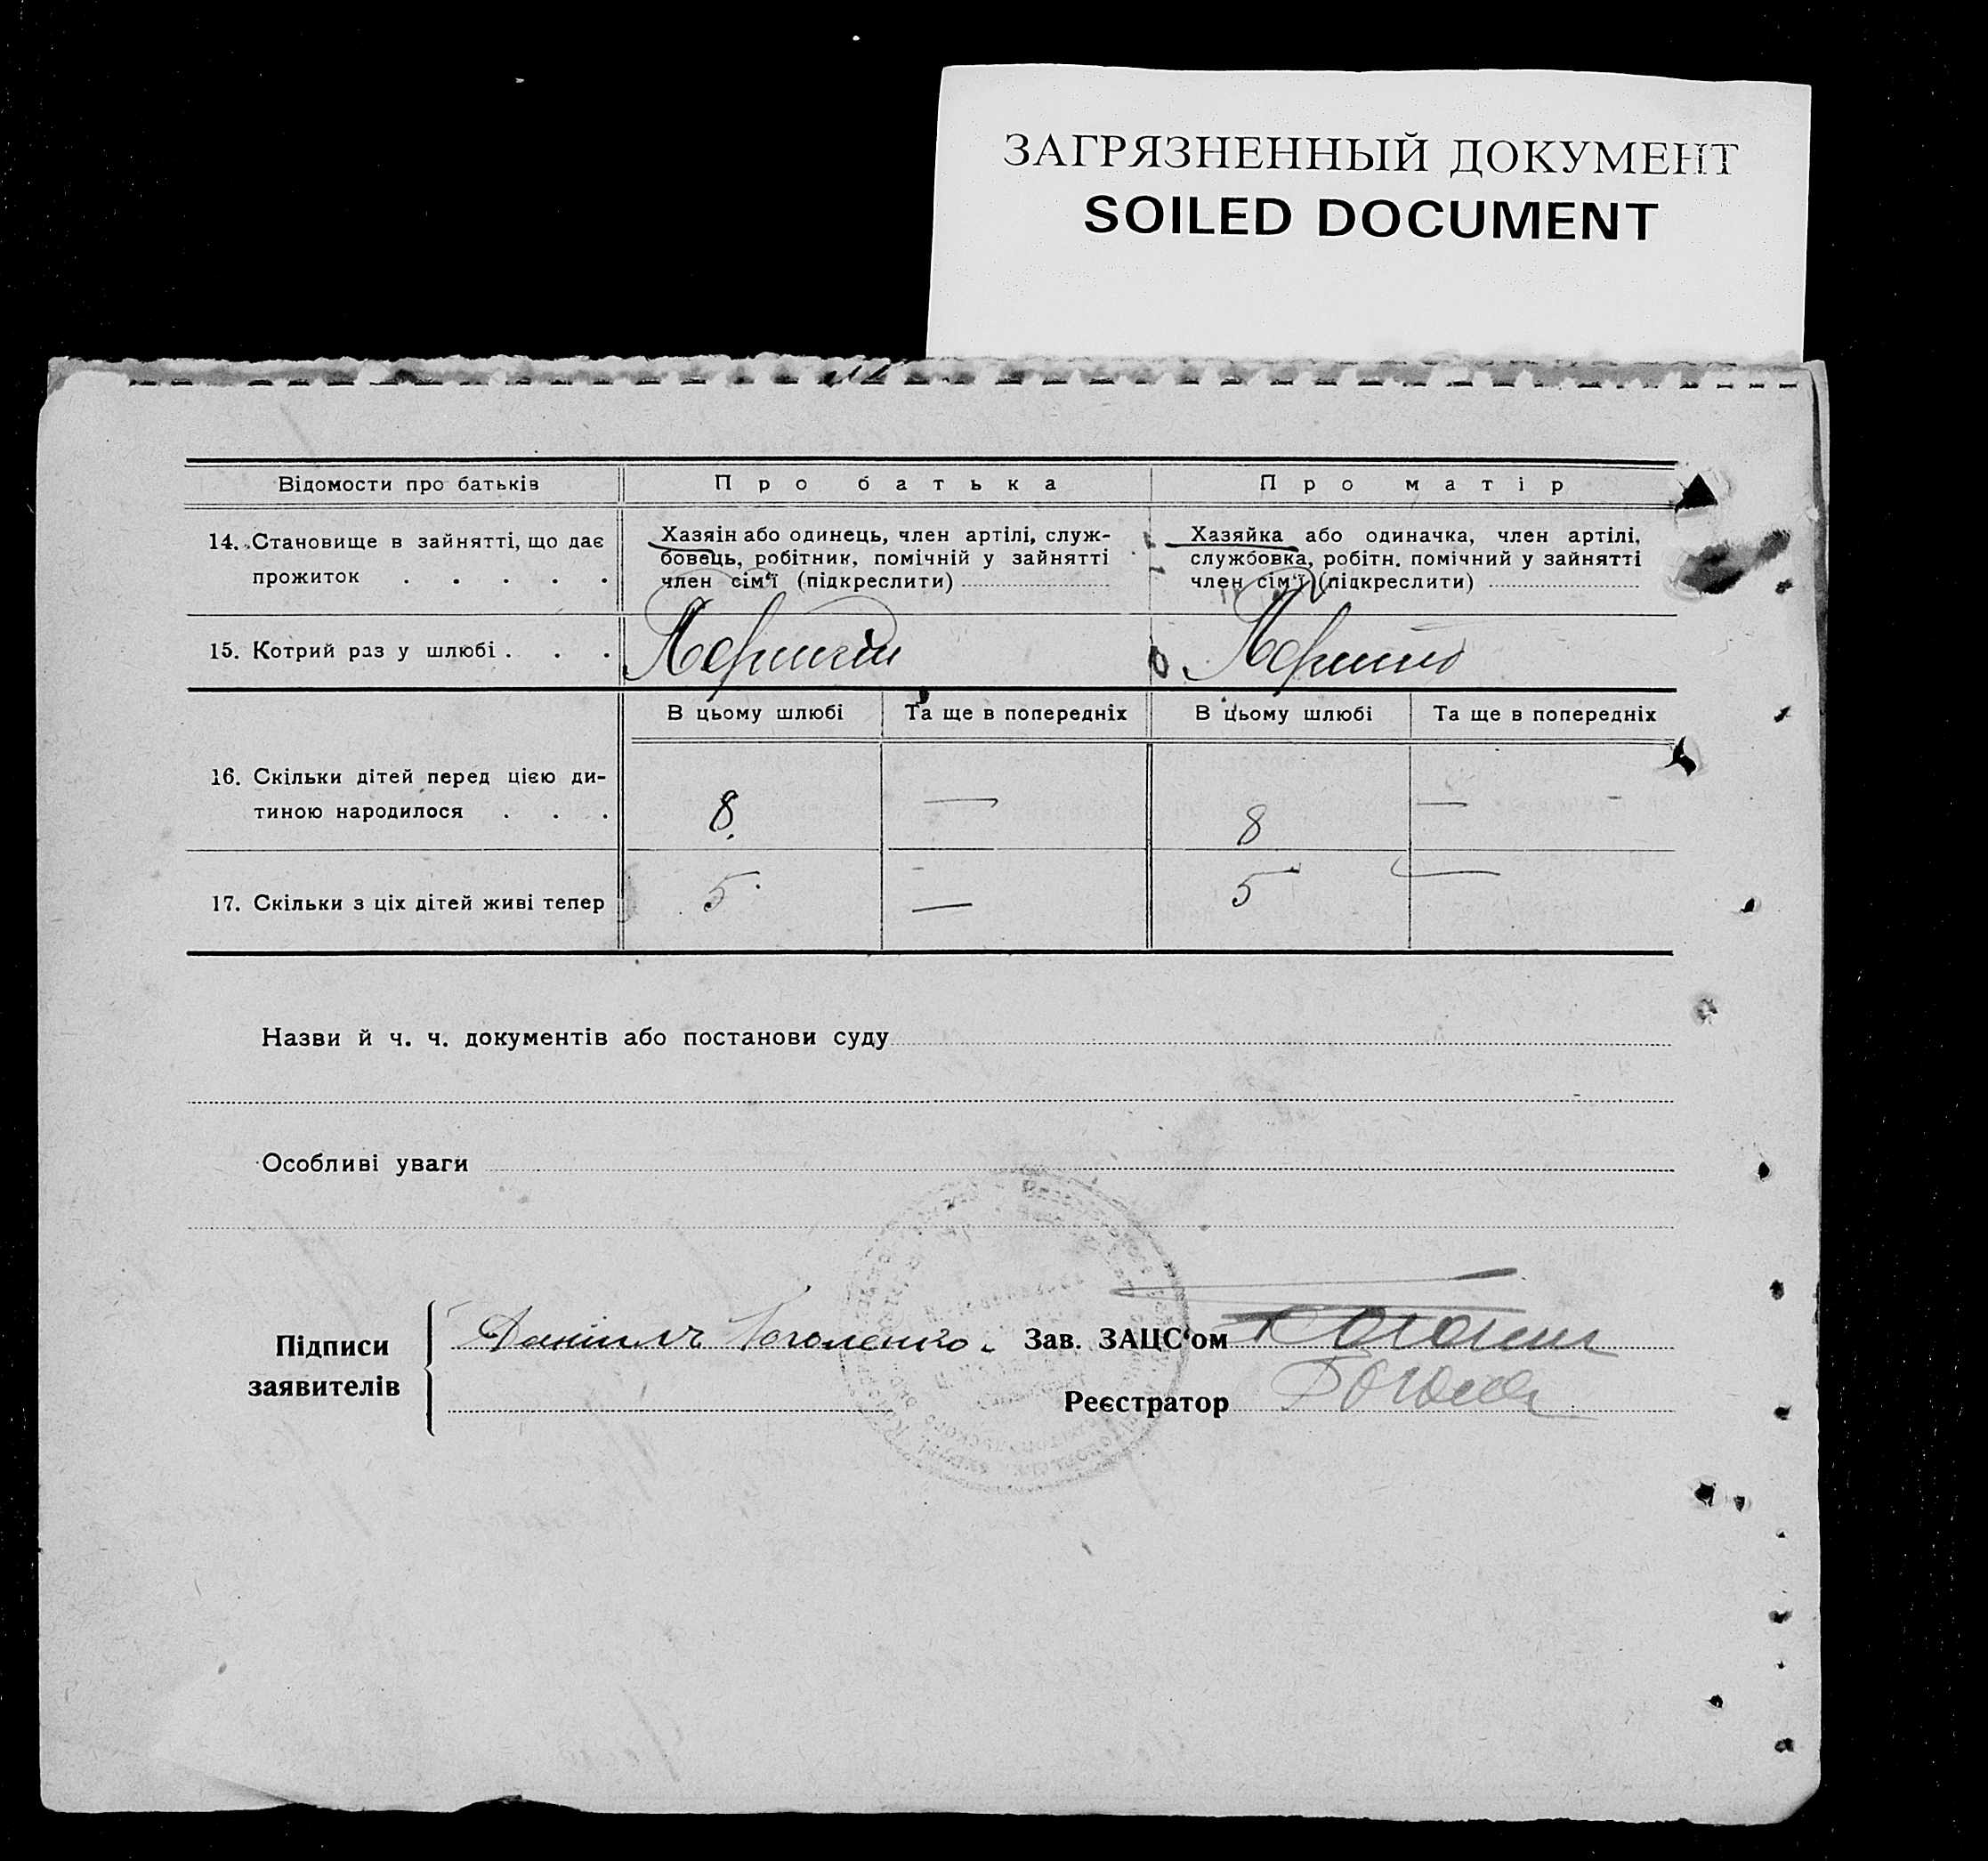 ЗАГРЯЗНЕННЫЙ ДОКУМЕНТ
SOILED DOCUMENT
Відомости про батьків
Про батька
Про матір
14. Становище в зайнятті, що дає
прожиток . . . . .
Хазяін або одинець, член артілі, служ-
бовець, робітник, помічній у зайнятті
член сім'ї (підкреслити)
Хазяйка або одиначка, член артілі,
службовка, робітн. помічний у зайнятті
член сім'ї (підкреслити)
15. Котрий раз у шлюбі . . .
В цьому шлюбі
Та ще в попередніх
В цьому шлюбі
Та ще в попередніх
16. Скільки дітей перед цією ди-
тиною народилося . . .
8
—
8
—
17. Скільки з ціх дітей живі тепер
5
—
5
—
Назви й ч. ч. документів або постанови суду
Особливі уваги
Підписи
заявителів
Зав. ЗАЦС'ом
Реєстратор